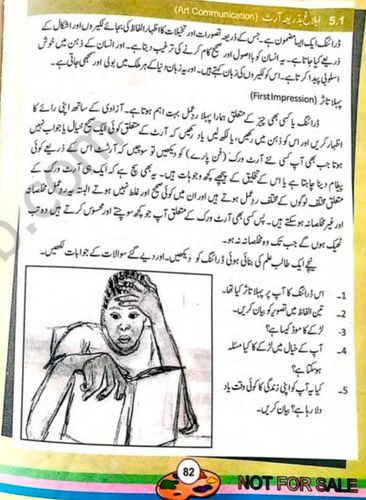 5.1 ابلاغ بذریعہ آرٹ (Art Communication)
ڈرائنگ ایک ایسا مضمون ہے۔ جس کے ذریعہ تصورات اور تخیلات کا اظہار الفاظ کی بجائے لکیروں اور اشکال کے
ذریعے کیا جاتا ہے۔ یہ انسان کو با اصول اور صحیح کام کرنے کی ترغیب دیتا ہے۔ اور انسان کے ذہن میں خوش
اسلوبی پیدا کرتا ہے۔ اس کو لکیروں کی زبان کہتے ہیں۔ اور یہ زبان دنیا کے ہر ملک میں بولی اور سمجھی جاتی ہے۔
پہلا تاثر (First Impression)
ڈرائنگ یا کسی بھی چیز کے متعلق ہمارا پہلا ردِ عمل بہت اہم ہوتا ہے۔ آزادی کے ساتھ اپنی رائے کا
اظہار کریں اور اس کو ذہن میں رکھیں، یا لکھ لیں یاد رکھیں کہ آرٹ کے متعلق کوئی ایک صحیح خیال یا جواب نہیں
ہوتا جب بھی آپ کسی نئے آرٹ ورک (فن پارے) کو دیکھیں تو سوچیں کہ آرٹسٹ اس کے ذریعے کوئی
پیغام دینا چاہتا ہے یا اس کے تخلیق کے پیچھے کچھ وجوہات ہیں۔ یہ بھی سچ ہے کہ ایک ہی آرٹ ورک کے
متعلق مختلف لوگوں کے مختلف ردِ عمل ہوتے ہیں اور ان میں کوئی صحیح اور غلط نہیں ہوتے البتہ یہ ردِ عمل مخلصانہ
اور غیر مخلصانہ ہو سکتے ہیں۔ پس کسی بھی آرٹ ورک کے متعلق آپ جو کچھ سوچتے اور محسوس کرتے ہیں وہ تب
ٹھیک ہوں گے جب تک وہ مخلصانہ نہ ہو۔
نیچے ایک طالب علم کی بنائی ہوئی ڈرائنگ کو دیکھیں۔ اور دیے گئے سوالات کے جوابات لکھیں۔
1- اس ڈرائنگ کا آپ پر پہلا تاثر کیا تھا۔
2- تین الفاظ میں تصویر کو بیان کریں۔
3- لڑکے کا موڈ کیسا ہے؟
4- آپ کے خیال میں لڑکے کا کیا مسئلہ
ہو سکتا ہے؟
5- کیا یہ آپ کو اپنی زندگی کا کوئی وقت یاد
دلا رہا ہے؟ بیان کریں۔
82
NOT FOR SALE